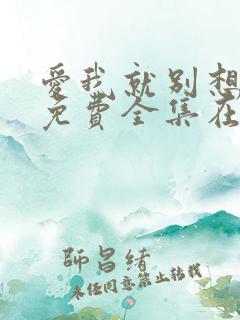 愛我就別想
免費全集在
師昌緒
未經同意禁止轉載